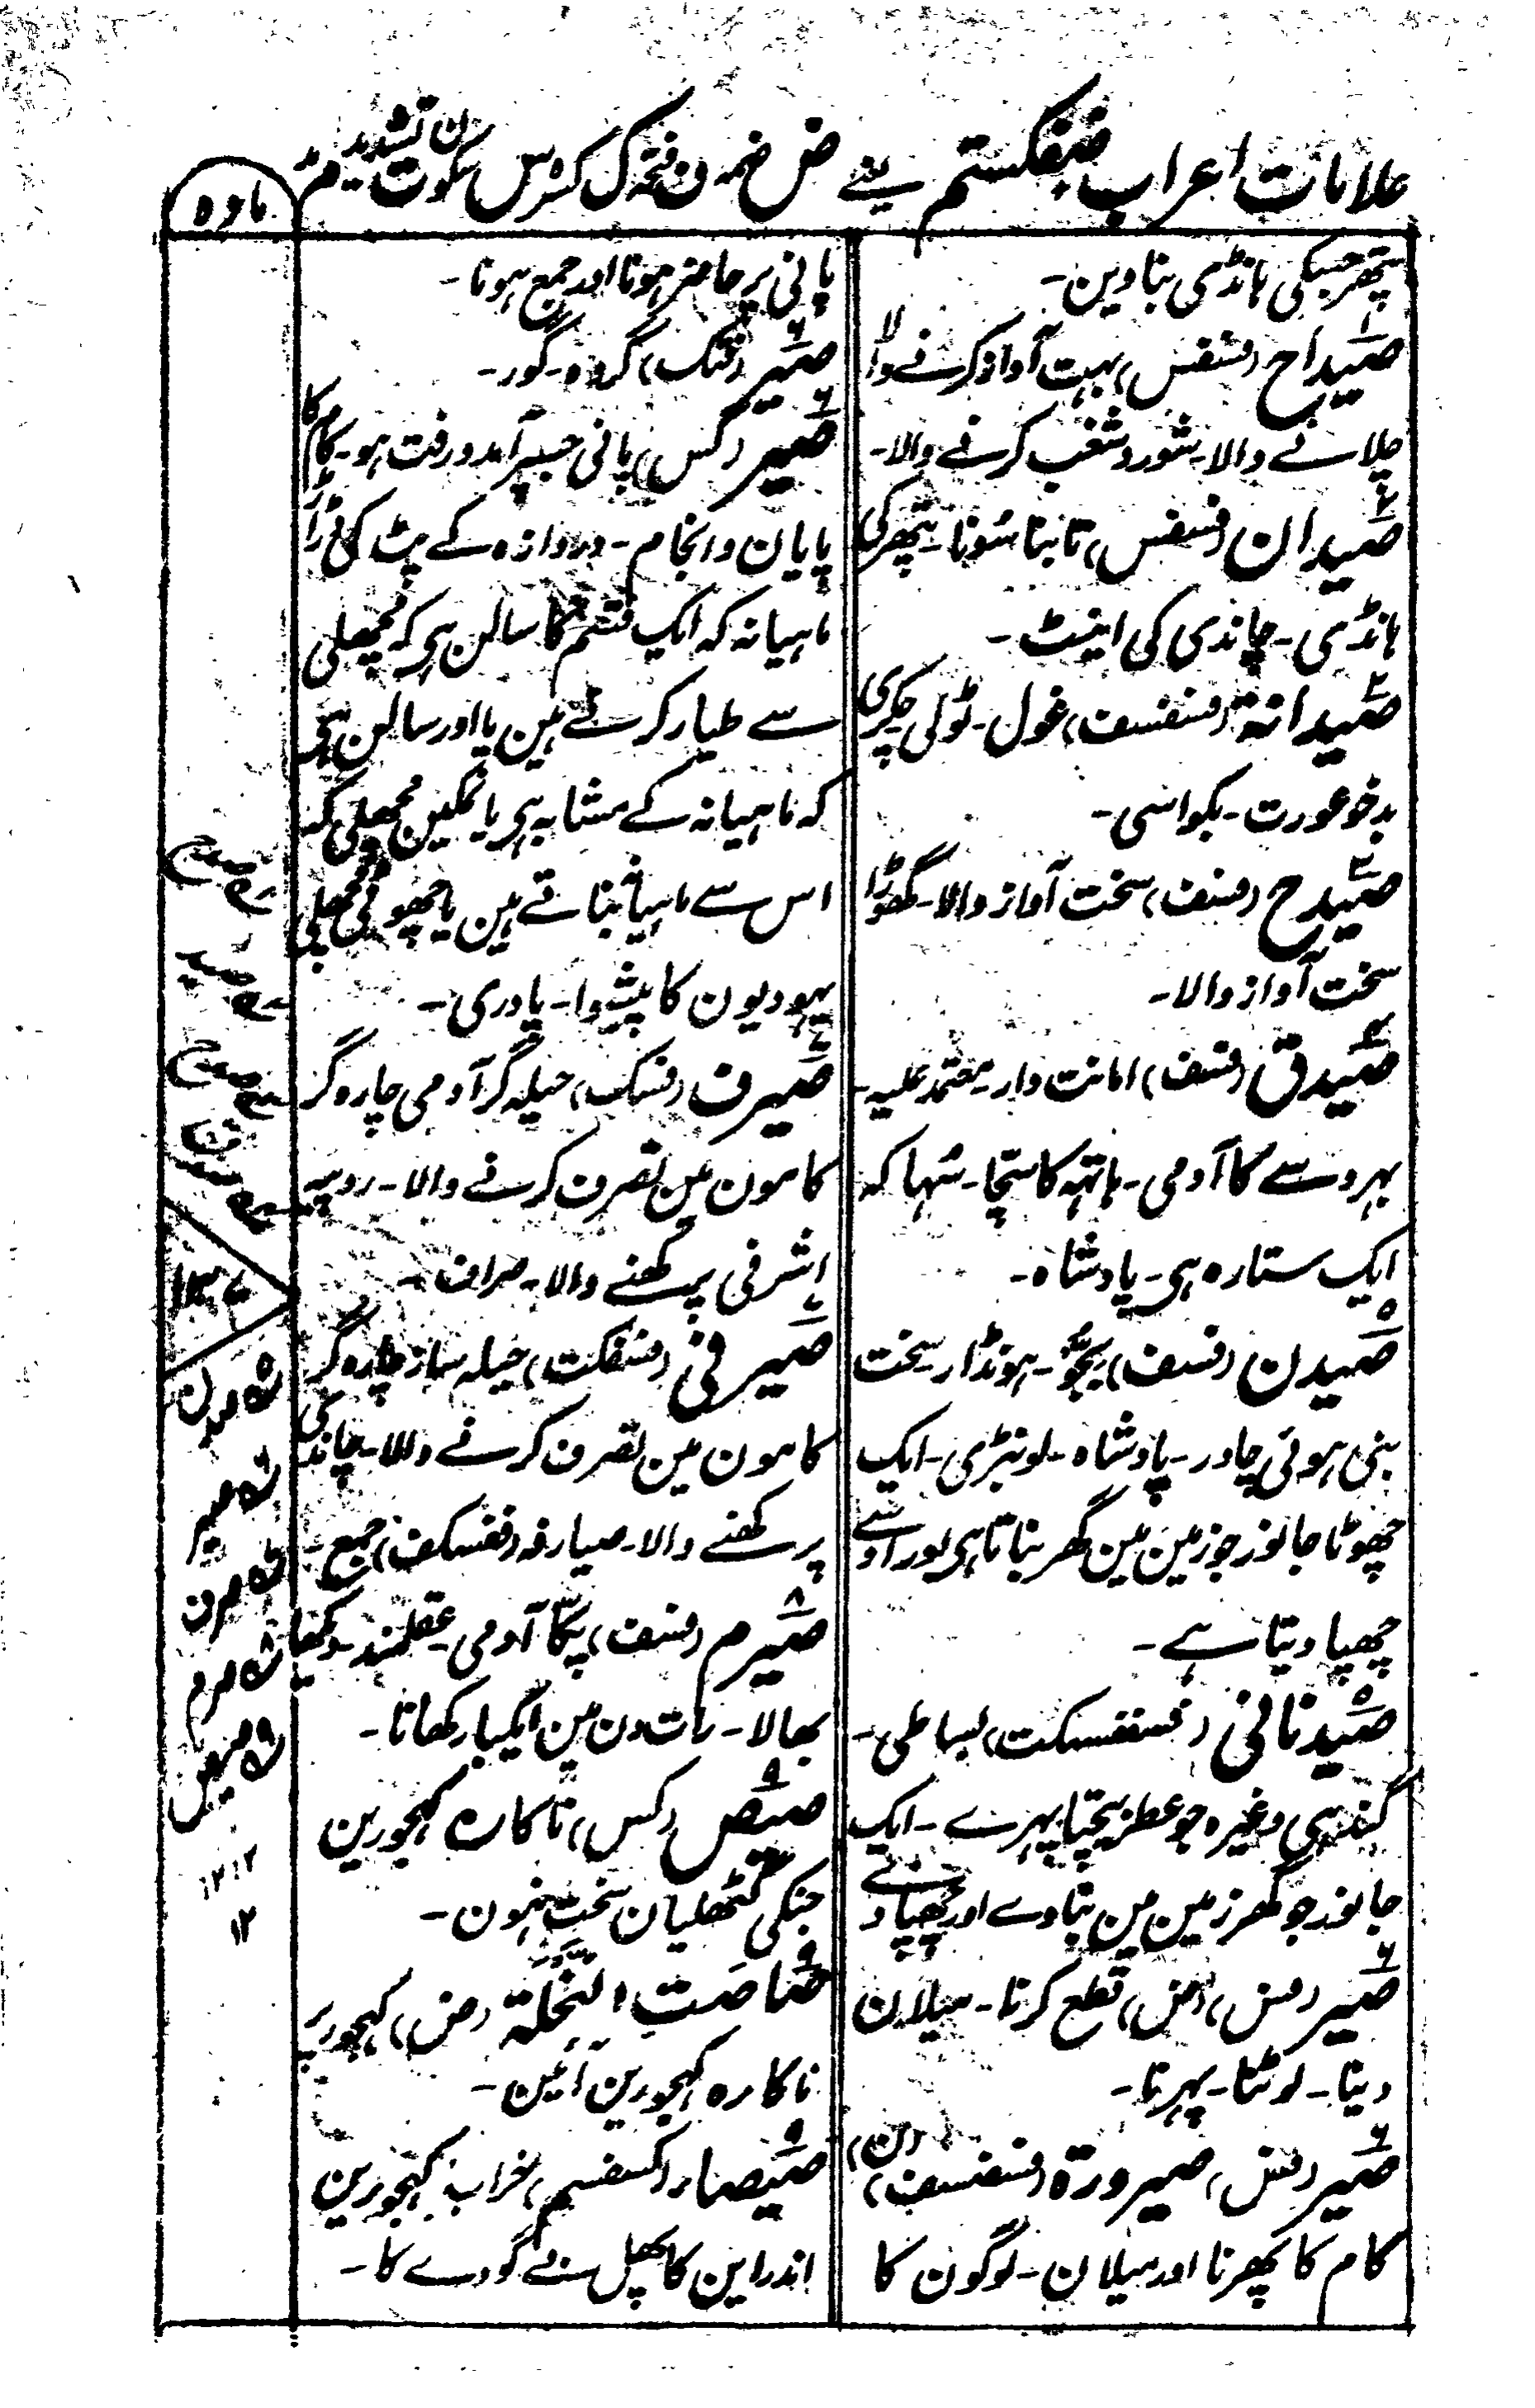 علامات اعراب ضفکستم یعنے ض ضمہ ف فتحہ ک کسرہ س سکون ت تشدید م مد
مادہ
پتھر جسکی ہانڈی بناوین۔
صَیداح (فسفس) بہت آواز کرنے والا
چلانے والا۔ شور و شغب کرنے والا۔
صَیدان (فسفس) تانبا سُونا۔ پتھر کی
ہانڈی۔ چاندی کی اینٹ۔
صَیدانۃ (فسفسف) غول۔ ٹولی چکری
بدخو عورت۔ بکواسی۔
صَیدح (فسف) سخت آواز والا۔ گھوڑا
سخت آواز والا۔
صَیدق (فسف) امانت دار۔ معتمد علیہ۔
بہروسے کا آدمی۔ ہاتہہ کا سچا۔ سُہا کہ
ایک ستارہ ہی۔ پادشاہ۔
صَیدن (فسف) بجّو۔ ہونڈار سخت
بنی ہوئی چادر۔ پادشاہ۔ لونبڑی۔ ایک
چھوٹا جانور جو زمین مین گھر بناتا ہی اور اوسے
چھپا دیتا ہے۔
صَیدنانی (فسففسکت) بساطی۔
گندہی وغیرہ جو عطر بیچتا پہرے۔ ایک
جانور جو گھر زمین مین بناوے اور چھپا دے
صَیر (فس) (ض) قطع کرنا۔ میلان
دینا۔ لوٹنا۔ پہرنا۔
صَیر (فس) صیرورۃ (فسضسف) (ض)
کام کا پھرنا اور میلان۔ لوگون کا
پانی پر حاضر ہونا اور جمع ہونا۔
صَیر (فتک) گروہ۔ گور۔
صِیر (کس) پانی جسپر آمد و رفت ہو۔ کام کا
پایان و انجام۔ دروازہ کے پٹ کی
ماہیانہ کہ ایک قسم کا سالن ہی کہ مچھلی
سے طیار کرتے ہین یا اور سالن ہی
کہ ماہیانہ کے مشابہ ہی یا نمکین مچھلی کہ
اس سے ماہیانہ بناتے ہین یا چھوٹی مچھلی
یہودیون کا پیشوا۔ پادری۔
صَیرف (فسک) حیلہ گر آدمی چارہ گر
کامون مین تصرف کرنے والا۔ روپیہ
اشرفی پرکھنے والا۔ صراف۔
صَیرفی (فسفکت) حیلہ ساز چارہ گر
کامون مین تصرف کرنے والا۔ چاندی
پرکھنے والا۔ صیارفہ (ففسکف) جمع۔
صَیرم (فسف) پکّا آدمی۔ عقلمند۔
بھالا۔ رات دن مین ایکبار کھانا۔
صِیص (کس) ناکارہ کہجورین
جنکی گٹھلیان سخت نہون۔
صَاصَتِ النَّخلَۃ (ض) کہجور پر
ناکارہ کہجورین آئین۔
صِیصاء (کسفسم) خراب کہجورین
اندراین کا پھل بے گودے کا۔
صدح
صید
صدح
صدق
صدن
صیر
صرف
صرم
صیص
۱۲۱۲
۱۲